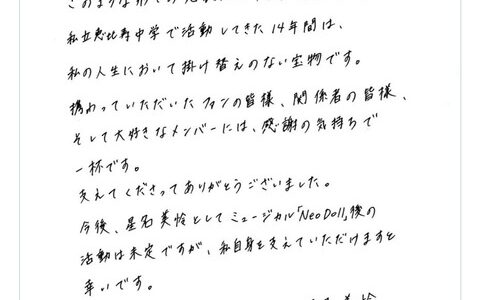 私立恵比寿中学で活動してきた14年間は、
私の人生において掛け替えのない宝物です。
携わっていただいたファンの皆様、関係者の皆様、
そして大好きなメンバーには、感謝の気持ちで
一杯です。
支えてくださってありがとうございました。
今後、星名美怜としてミュージカル「Neo Doll」後の
活動は未定ですが、私自身を支えていただけますと
幸いです。